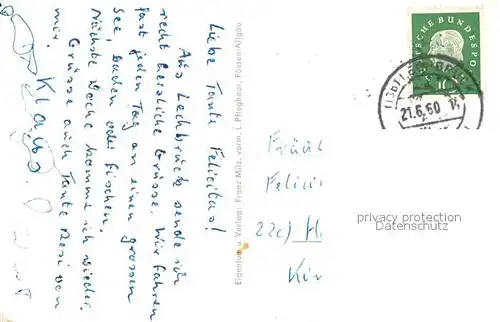 Liebe Tante Felicitas!
Aus Lechbruck sende ich
recht herzliche Grüsse. Wir fahren
fast jeden Tag an einen grossen
See, baden oder fischen.
Nächste Woche komme ich wieder.
Grüsse auch Tante Resi von
mir.
Klaus.
Eigentum u. Verlag: Franz Milz, vorm. L. Pflughaar, Füssen-Allgäu
DEUTSCHE BUNDESPO
10
21.6.60
Fräul
Felici
22c)
Kir
privacy protection
Datenschutz